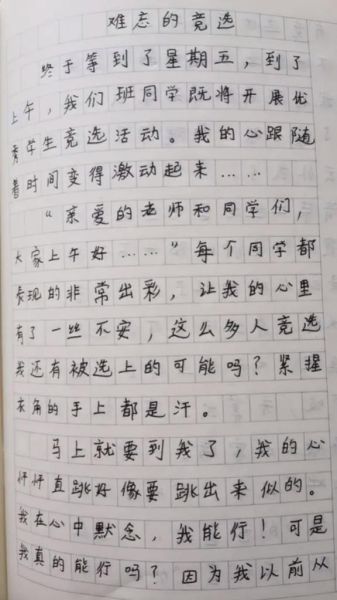 难忘的竞选
终于等到了星期五，到了
上午，我们班同学既将开展优
秀学生竞选活动。我的心跟随
着时间变得激动起来……
“亲爱的老师和同学们，
大家上午好……”每个同学都
表现的非常出彩，让我的心里
有了一丝不安，这么多人竞选
我还有被选上的可能吗？紧握
衣角的手上都是汗。
马上就要到我了，我的心
怦怦直跳好像要跳出来似的。
我在心中默念，我能行！可是
我真的能行吗？因为我以前从